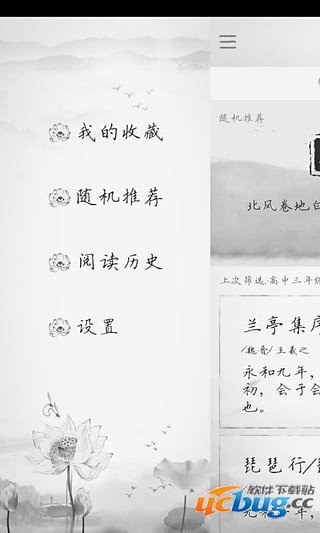 我的收藏
随机推荐
阅读历史
设置
随机推荐
北风卷地白
上次筛选:高中三年级
兰亭集序
/魏晋/ 王羲之
永和九年，
初，会于会
也。
琵琶行/
软件下载站
ucbug.cc
元和十年，